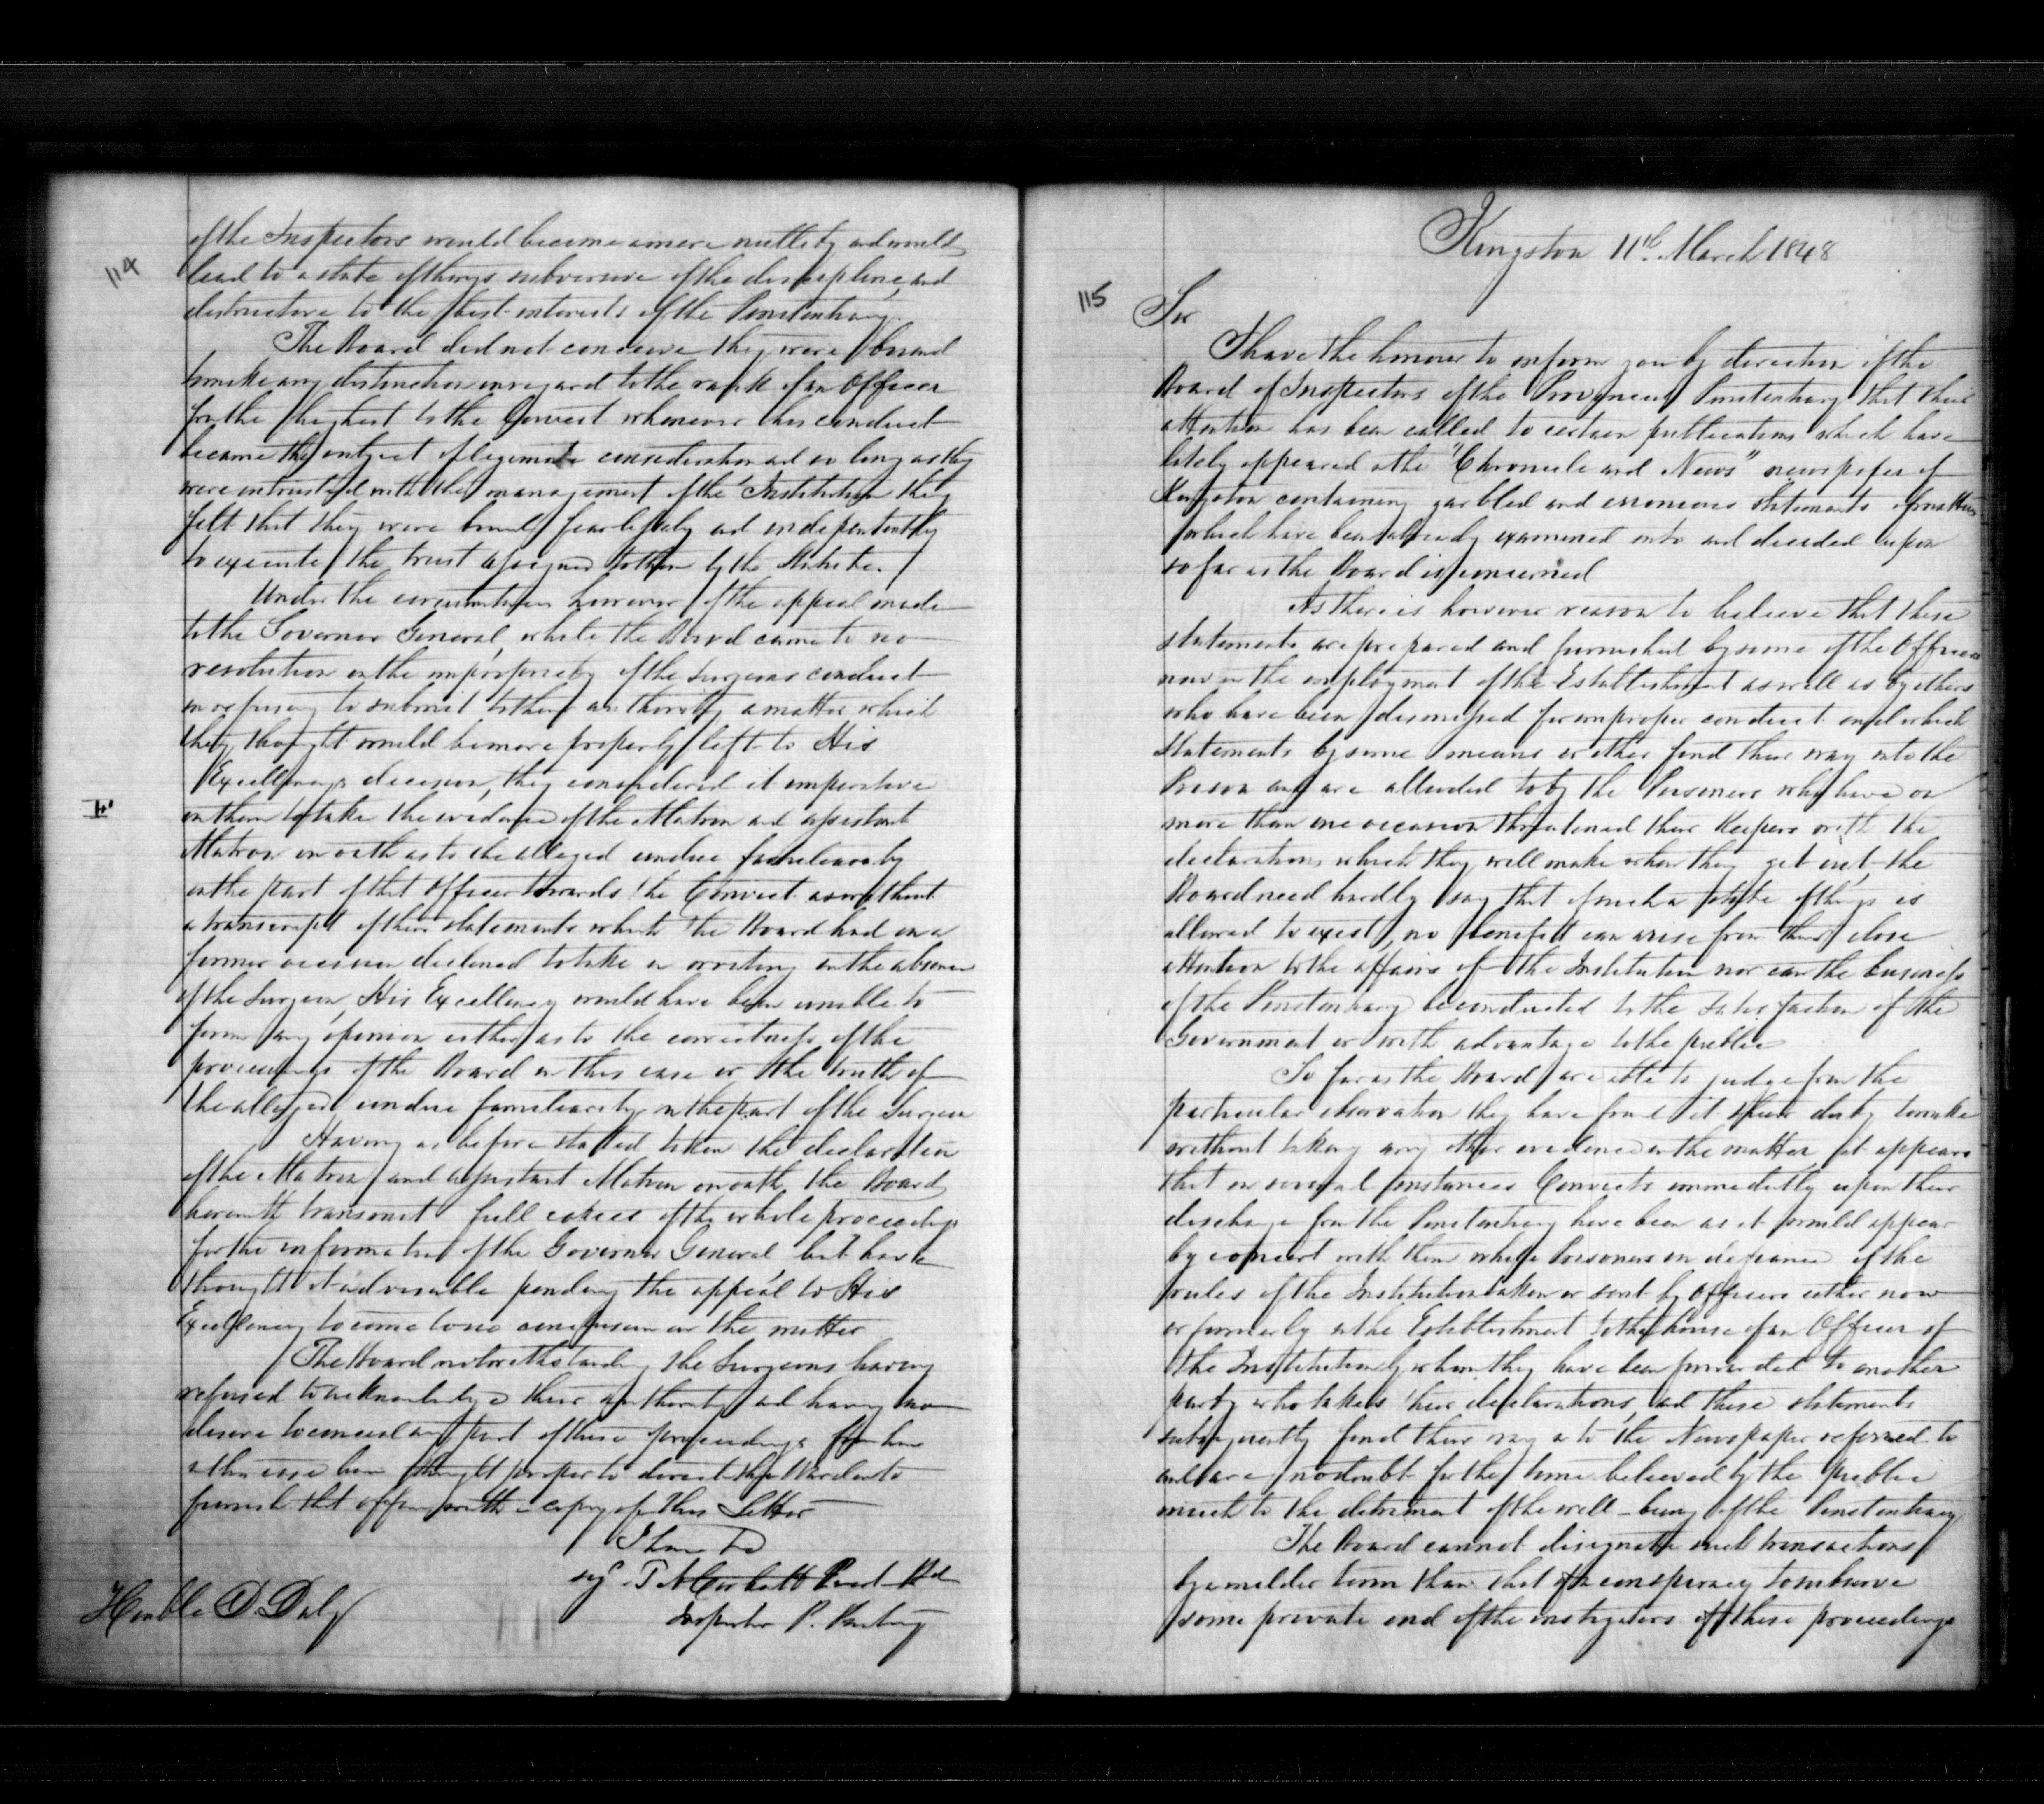 114
of the Inspectors would become a mere nullity and would
lead to a state of things subversive of the discipline, and
destructive to the best interests of the Penitentiary.
The Board did not conceive they were bound
to make any distinction in regard to the rank of an Officer
from the highest to the lowest whenever his conduct
became the subject of legimate consideration and so long as they
were intrusted with the management of the Institution they
felt that they were bound fearlessly and independently
to execute the trust assigned to them by the Statute.
Under the circumstances however of the appeal made
to the Governor General, while the Board came to no
resolution on the impropriety of the Surgeons conduct
in refusing to submit to their authority a matter which
they thought would be more properly left to His
Excellency's decision, they considered it imperative
on them to take the evidence of the Matron and assistant
Matron on oath as to the alleged undue familiarity
on the part of that Officer towards the Convict as without
a transcript of their statements which the Board had on a
former occasion declined to take in writing in the absence
of the Surgeon, His Excellency would have been unable to
form any opinion either as to the correctness of the
proceedings of the Board in this case or the truth of
the alleged undue familiarity on the part of the Surgeon
Having as before stated taken the declaration
of the Matron and assistant Matron on oath, the Board
herewith transmit full copies of the whole proceedings
for the information of the Governor General but have
thought it advisable pending the appeal to His
Excellency to come to no conclusion on the matter
The Board notwithstanding the Surgeons having
refused to acknowledge their authority and having no
desire to conceal any part of these proceedings have
in this case been thought proper to direct the Warden to
furnish that officer with a copy of this Letter
I have &c
Honble D. Daly
Inspector P. Penty
Kingston 11th March 1848
115
Sir
I have the honour to inform you by direction of the
Board of Inspectors of the Provincial Penitentiary that their
attention has been called to certain publications which have
lately appeared in the "Chronicle and News" newspaper of
Kingston containing garbled and erroneous statements of matters
which have been already examined into and decided upon
so far as the Board is concerned
As there is however reason to believe that these
statements are prepared and furnished by some of the Officers
now in the employment of the Establishment as well as by others
who have been dismissed for improper conduct and which
statements by some means or other find their way into the
Prison and are alluded to by the Prisoners who have on
more than one occasion threatened their Keepers with the
declarations which they will make when they get out, the
Board need hardly say that if such a state of things is
allowed to exist, no benefit can arise from their close
attention to the affairs of the Institution nor can the business
of the Penitentiary be conducted to the satisfaction of the
Government or with advantage to the public
So far as the Board are able to judge from the
particular observation they have found it their duty to make
without taking any other evidence in the matter, it appears
that in several instances Convicts immediately upon their
discharge from the Penitentiary have been as it would appear
by concert with them while Prisoners in defiance of the
rules of the Institution taken or sent by Officers either now
or formerly in the Establishment to the house of an Officer of
the Institution by whom they have been forwarded to another
party who takes their declarations, and these statements
subsequently find their way into the Newspaper referred to
and are no doubt for the time believed by the public
much to the detriment of the well-being of the Penitentiary
The Board cannot designate such transactions
by a milder term than that of a conspiracy to subserve
some private end of the instigators of these proceedings